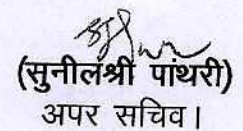 (सुनीलश्री पांथरी)
अपर सचिव।